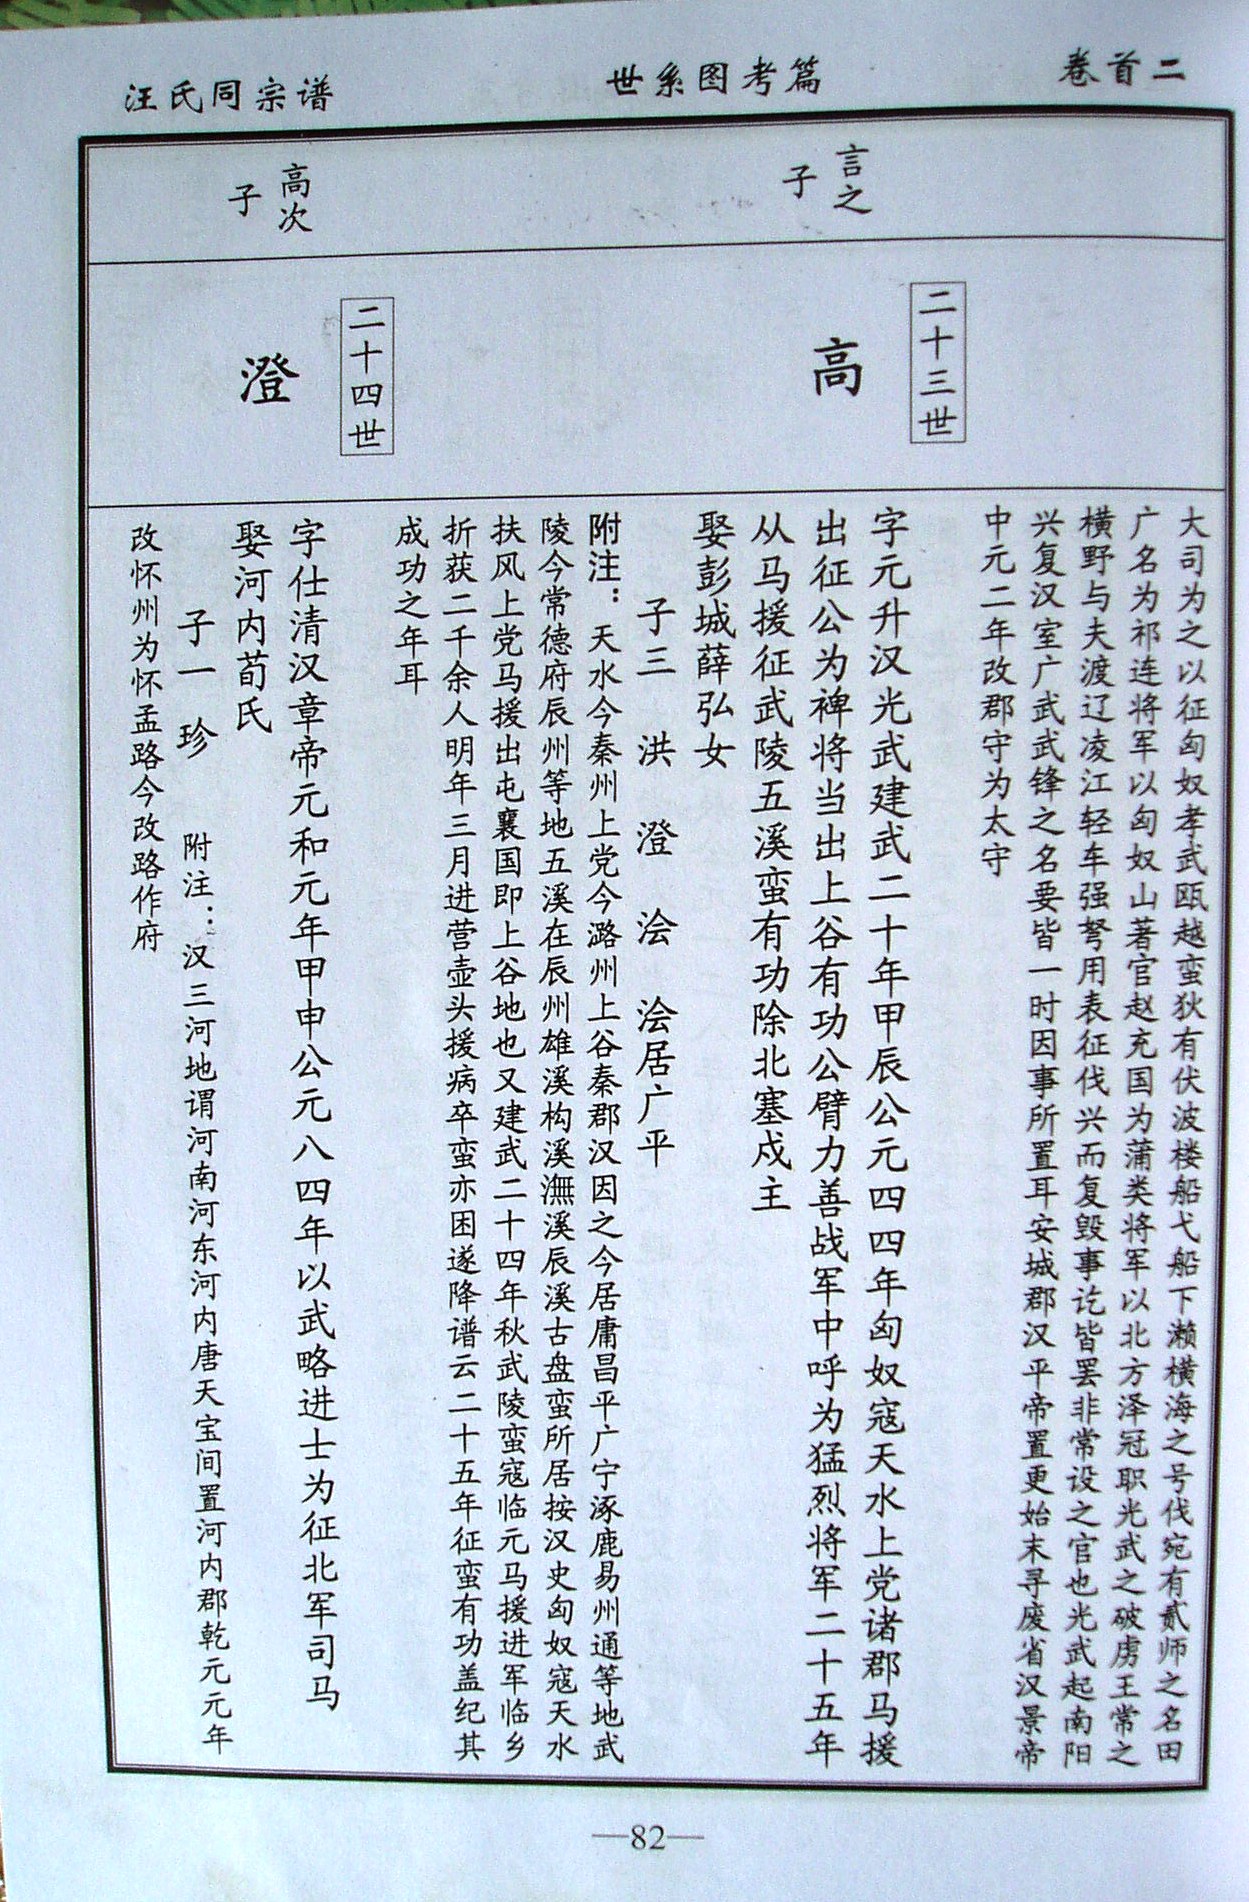 卷首二
世系图考篇
汪氏同宗谱
大司为之以征匈奴孝武瓯越蛮狄有伏波楼船弋船下濑横海之号伐宛有贰师之名田
广名为祁连将军以匈奴山著官赵充国为蒲类将军以北方泽冠职光武之破虏王常之
横野与夫渡辽凌江轻车强弩用表征伐兴而复毁事讫皆罢非常设之官也光武起南阳
兴复汉室广武武锋之名要皆一时因事所置耳安城郡汉平帝置更始末寻废省汉景帝
中元二年改郡守为太守
言之
子
二十三世
高
字元升汉光武建武二十年甲辰公元四四年匈奴寇天水上党诸郡马援
出征公为裨将当出上谷有功公臂力善战军中呼为猛烈将军二十五年
从马援征武陵五溪蛮有功除北塞戍主
娶彭城薛弘女
子三 洪 澄 浍 浍居广平
附注：天水今秦州上党今潞州上谷秦郡汉因之今居庸昌平广宁涿鹿易州通等地武
陵今常德府辰州等地五溪在辰州雄溪构溪潕溪辰溪古盘蛮所居按汉史匈奴寇天水
扶风上党马援出屯襄国即上谷地也又建武二十四年秋武陵蛮寇临元马援进军临乡
折获二千余人明年三月进营壶头援病卒蛮亦困遂降谱云二十五年征蛮有功盖纪其
成功之年耳
高次
子
二十四世
澄
字仕清汉章帝元和元年甲申公元八四年以武略进士为征北军司马
娶河内荀氏
子一 珍 附注：汉三河地谓河南河东河内唐天宝间置河内郡乾元元年
改怀州为怀孟路今改路作府
—82—